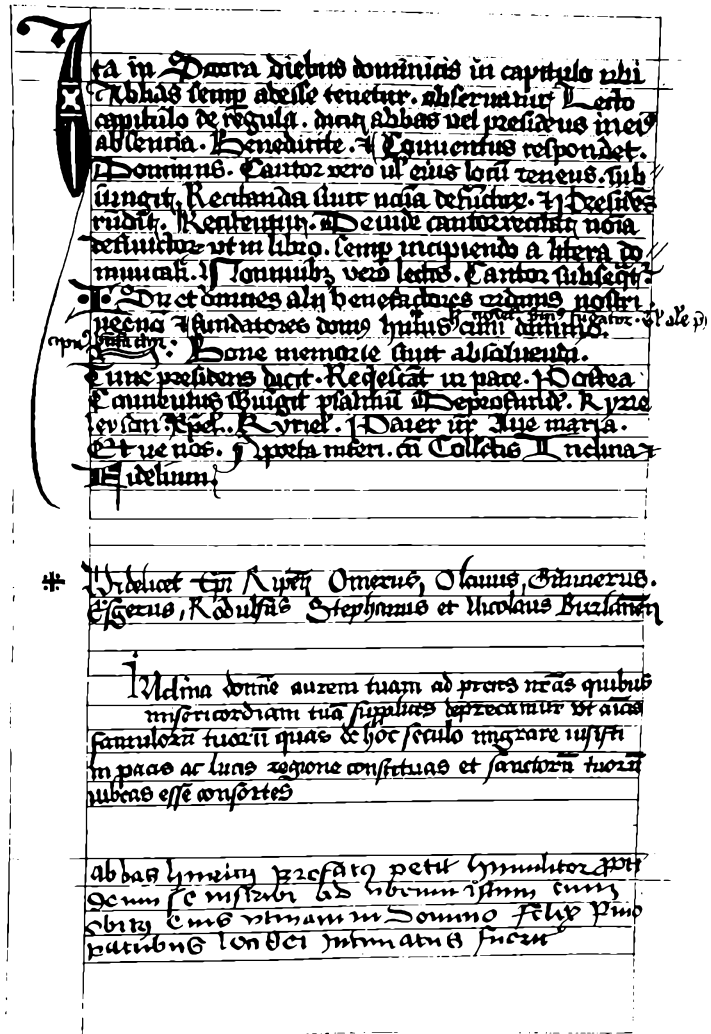 Ita in Dacia diebus dominicis in capitulo ubi
Abbas semp adesse tenetur. observatur Lecto
capitulo de regula. dicit abbas vel presidens in eiꝰ
absencia. Benedicite. & Conventus respondet.
Dominus. Cantor vero ul eius locū tenens. sub
iungit. Recitanda sunt noīa defūctoꝝ. & Presidēs
Recitentur. Deinde cantor recitat noīa
defunctoꝝ ut in libro. semp incipiendo a litera do
minicali. Nominibꝫ vero lectis. Cantor subseqt̄.
Isti et omnes alij benefactores ordinis nostri
necnō & fundatores domꝰ huius cum
Bone memorie sunt absolvendi.
Tunc presidens dicit. Reqescāt in pace. Postea
Conventus psalmū Deprofund. Kyrie
leyson. Xpel. Kyriel. Pater nr̄. Aue maria.
Et ne nos. A porta inferi. cū Collectis Inclina &
Fidelium.
Videlicet Ep̄i Ripen̄ Omerus, Olauus, Gūnerus.
Esgerus, Rodulfus Stephanus et Nicolaus Burlanen̄
INclina domīe aurem tuam ad preces nr̄as quibus
misericordiam tuā supplices deprecamur ut aīas
famulorū tuorū quas de hoc seculo migrare iusisti
in pacis ac lucis regione constituas et sanctorū tuorū
iubeas esse consortes
abbas henricꝰ prefatꝰ petit humiliter
demum se inscribi ad librum istum cum
obitꝰ eius utinam in Domino felix
patribus loci dei intimatus fuerit